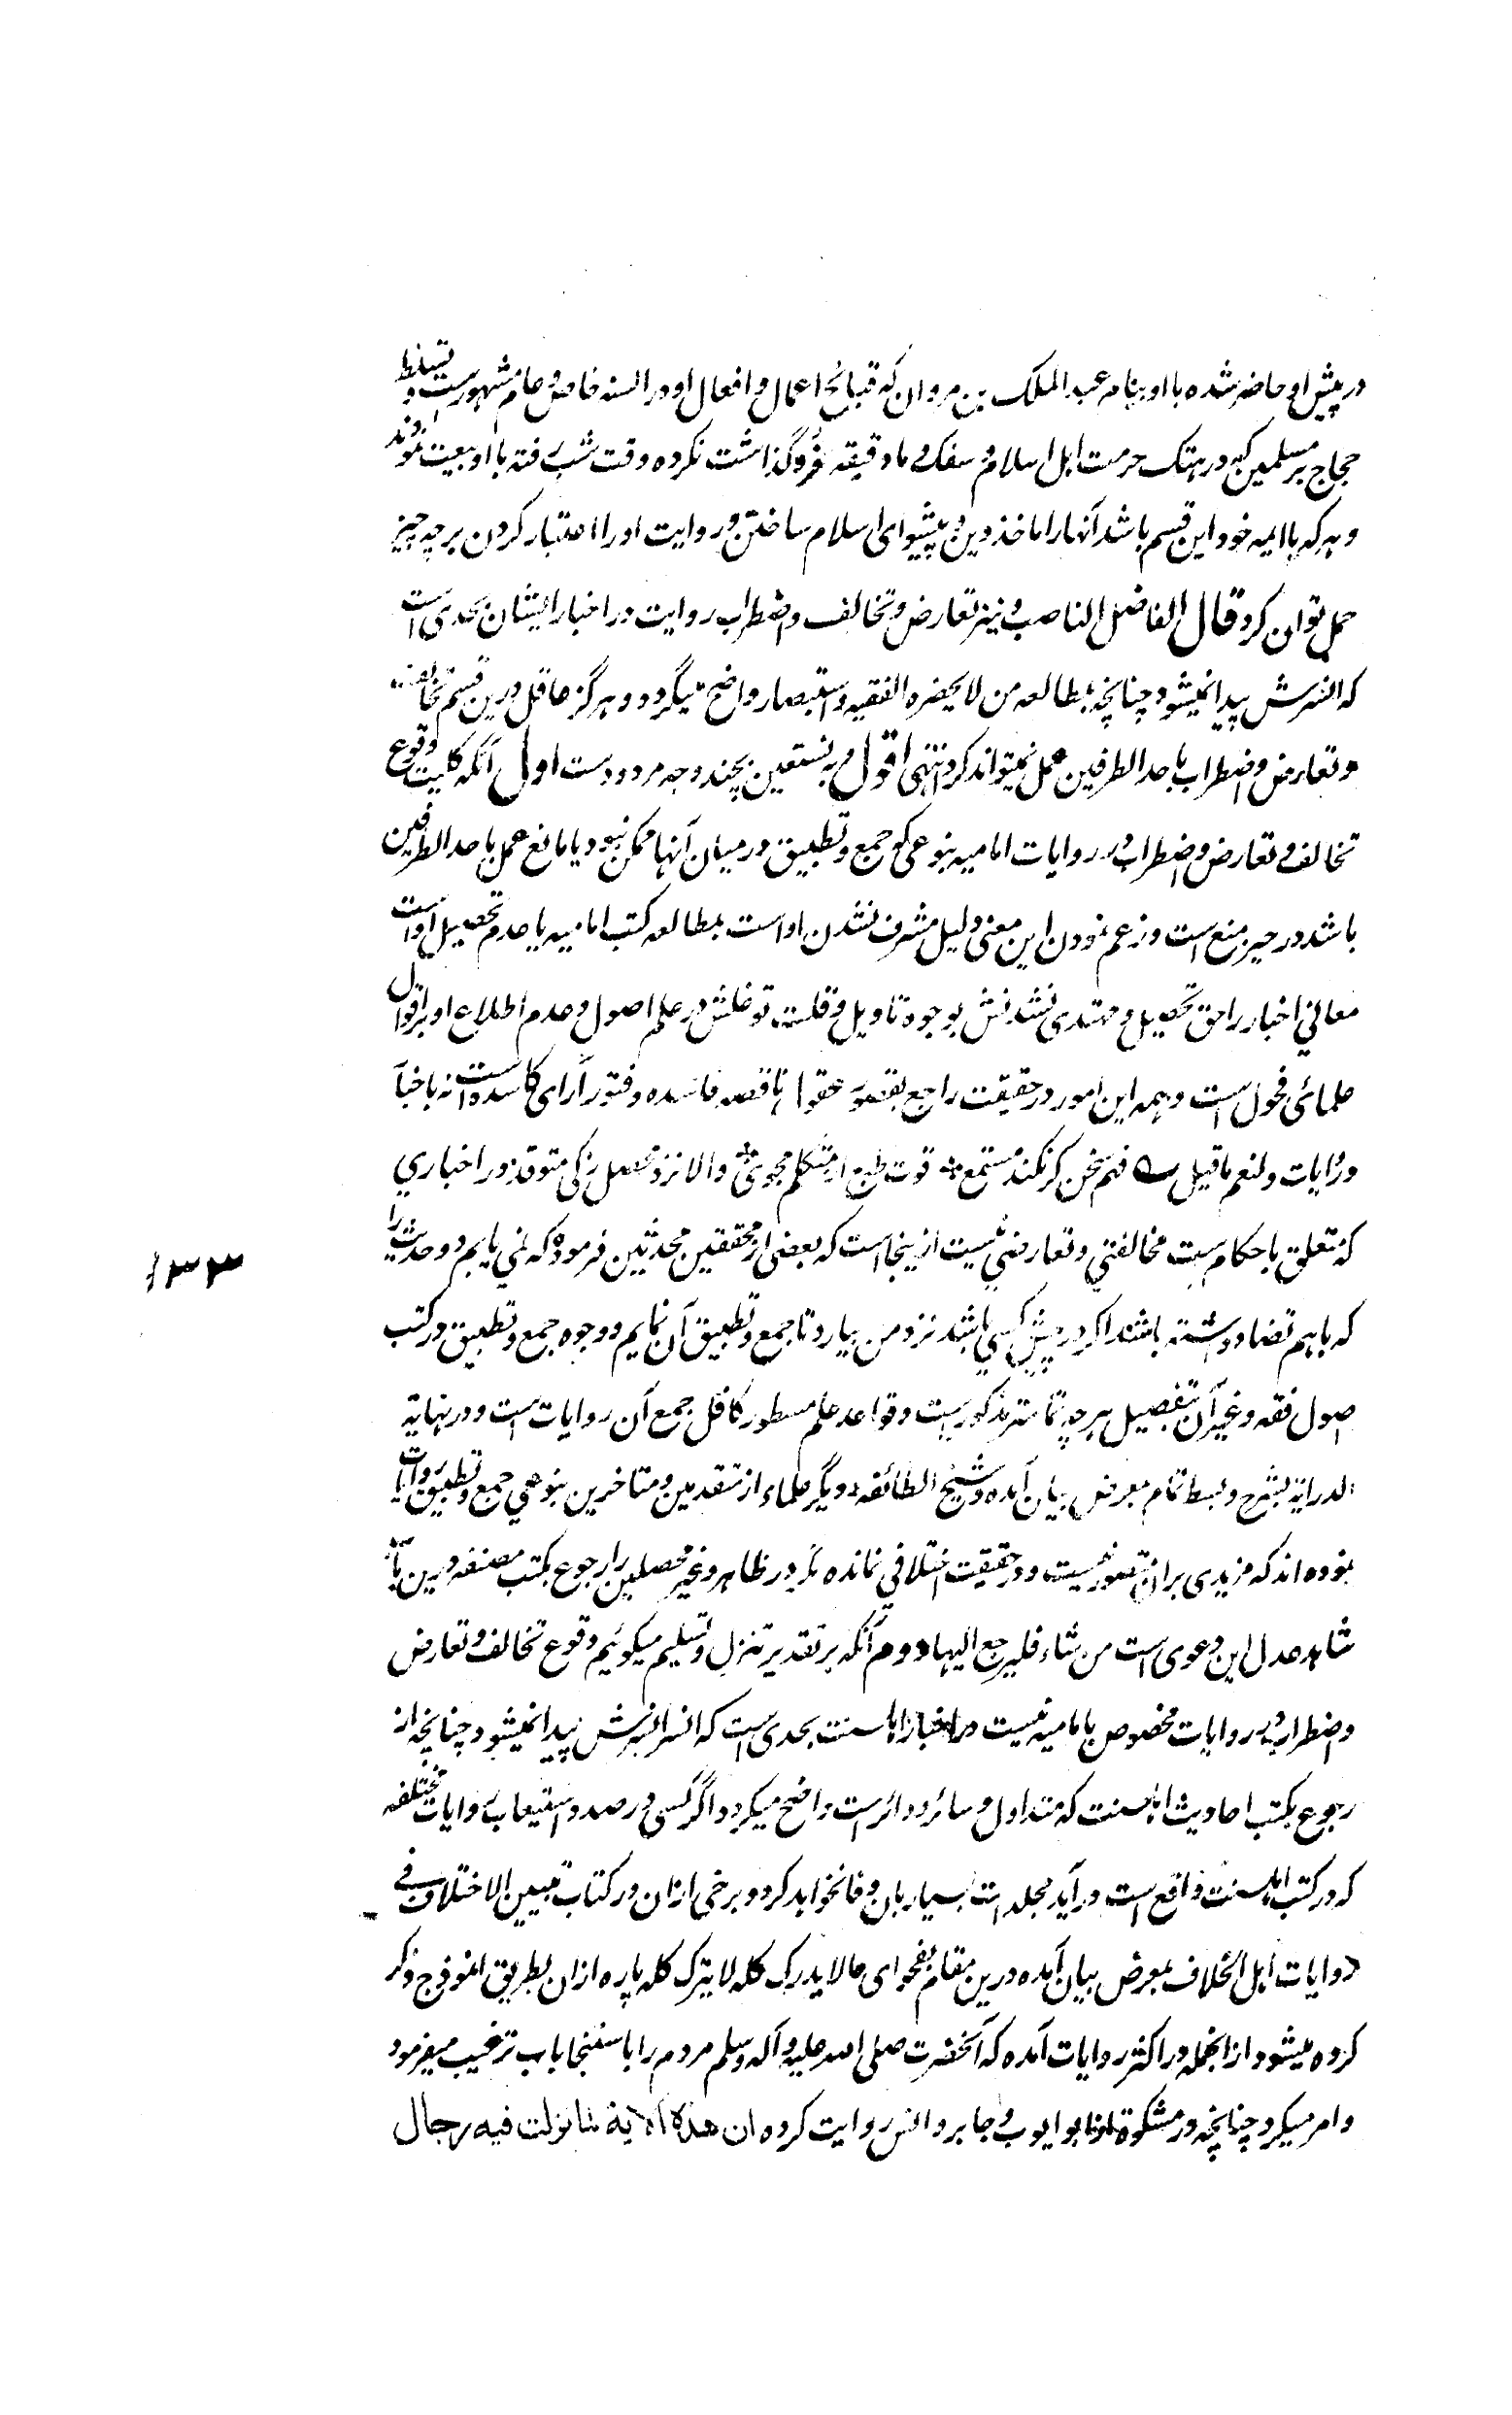 در پیش او حاضر شده با او بنام عبد الملک بن مروان که قبائح اعمال و افعال او در السنه خاص و عام مشهورست و تسلط
حجاج بر مسلمین که در هتک حرمت اهل اسلام و سفک دما دقیقه فروگذاشت نکرده وقت شب رفته با او بیعت نمودند
و هر که با ایمه خود این قسم باشد آنها را ماخذ دین و پیشوای اسلام ساختن و روایت او را اعتبار کردن بر چه چیز
حمل توان کرد قال الفاضل الناصب و نیز تعارض و تخالف و اضطراب روایت در اخبار ایشان بحدی است
که الخرش پیدا نمیشود چنانچه بمطالعه من لا یحضره الفقیه و استبصار واضح میگردد و هرگز عاقل درین قسم تخالف
و تعارض و اضطراب باحد الطرفین عمل نمیتواند کرد انتهی اقول و به نستعین بچند وجه مردودست اول آنکه کلیت وقوع
تخالف و تعارض و اضطراب در روایات امامیه بنوعی که جمع و تطبیق درمیان آنها ممکن نبود یا مانع عمل باحد الطرفین
باشد در حیز منع است و زعم نمودن این معنی دلیل مشرف نشدن او است بمطالعه کتب امامیه یا عدم تحصیل او است
معانی اخبار را حق تحصیل و مهتدی نشدنش بوجوه تاویل و قلت توغلش در علم اصول و عدم اطلاع او بر اقوال
علمائی فحول است و همه این امور در حقیقت راجع بقصور عقول ناقصه فاسده و فتور آرای کاسده است نه باخبار
و روایات و لنعم ما قیل فهم سخن گر نکند مستمع قوت طبع از متکلم مجوی و الا نزد محصل زکی متوقد در اخباری
که متعلق باحکام ست مخالفتی و تعارضی نیست ازینجاست که بعضی از محققین محدثین فرموده که نمی یابم دو حدیث را
که باهم تضاد داشته باشند اگر در پیش کسی باشد نزد من بیارد تا جمع و تطبیق آن نمایم و وجوه جمع و تطبیق در کتب
اصول فقه و غیر آن بتفصیل هر چه تمامتر مذکورست و قواعد علم مسطور کافل جمع آن روایات است و در نهایة
الدرایة بشرح و بسط تمام بمعرض بیان آمده و شیخ الطائفه و دیگر علماء از متقدمین و متاخرین بنوعی جمع و تطبیق روایات
نموده اند که مزیدی بران متصور نیست و در حقیقت اختلافی نمانده مگر در ظاهر و غیر محصلین را رجوع بکتب مصنفه درین باب
شاهد عدل این دعوی است من شاء فلیرجع الیها دوم آنکه بر تقدیر تنزل و تسلیم میگوئیم وقوع تخالف و تعارض
و اضطراب در روایات مخصوص بامامیه نیست در اخبار اهلسنت بحدی است که اثر الخرش پیدا نمیشود چنانچه از
رجوع بکتب احادیث اهلسنت که متداول و سائر و دائر است واضح میگردد اگر کسی در صدد استیعاب روایات مختلفه
که در کتب اهلسنت واقع است در آید مجلدات بسیار بان وفا نخواهد کرد و برخی ازان در کتاب تبیین الاختلاف فی
روایات اهل الخلاف بمعرض بیان آمده درین مقام بفحوای ما لا یدرک کله لا یترک کله پاره ازان بطریق انموذج ذکر
کرده میشود ازانجمله در اکثر روایات آمده که آنحضرت صلی الله علیه و آله و سلم مردم را باستنجا باب ترغیب میفرمود
و امر میکرد چنانچه در مشکوة از ابو ایوب و جابر و انس روایت کرده ان هذه الایة لما نزلت فیه رجال
۱۳۳